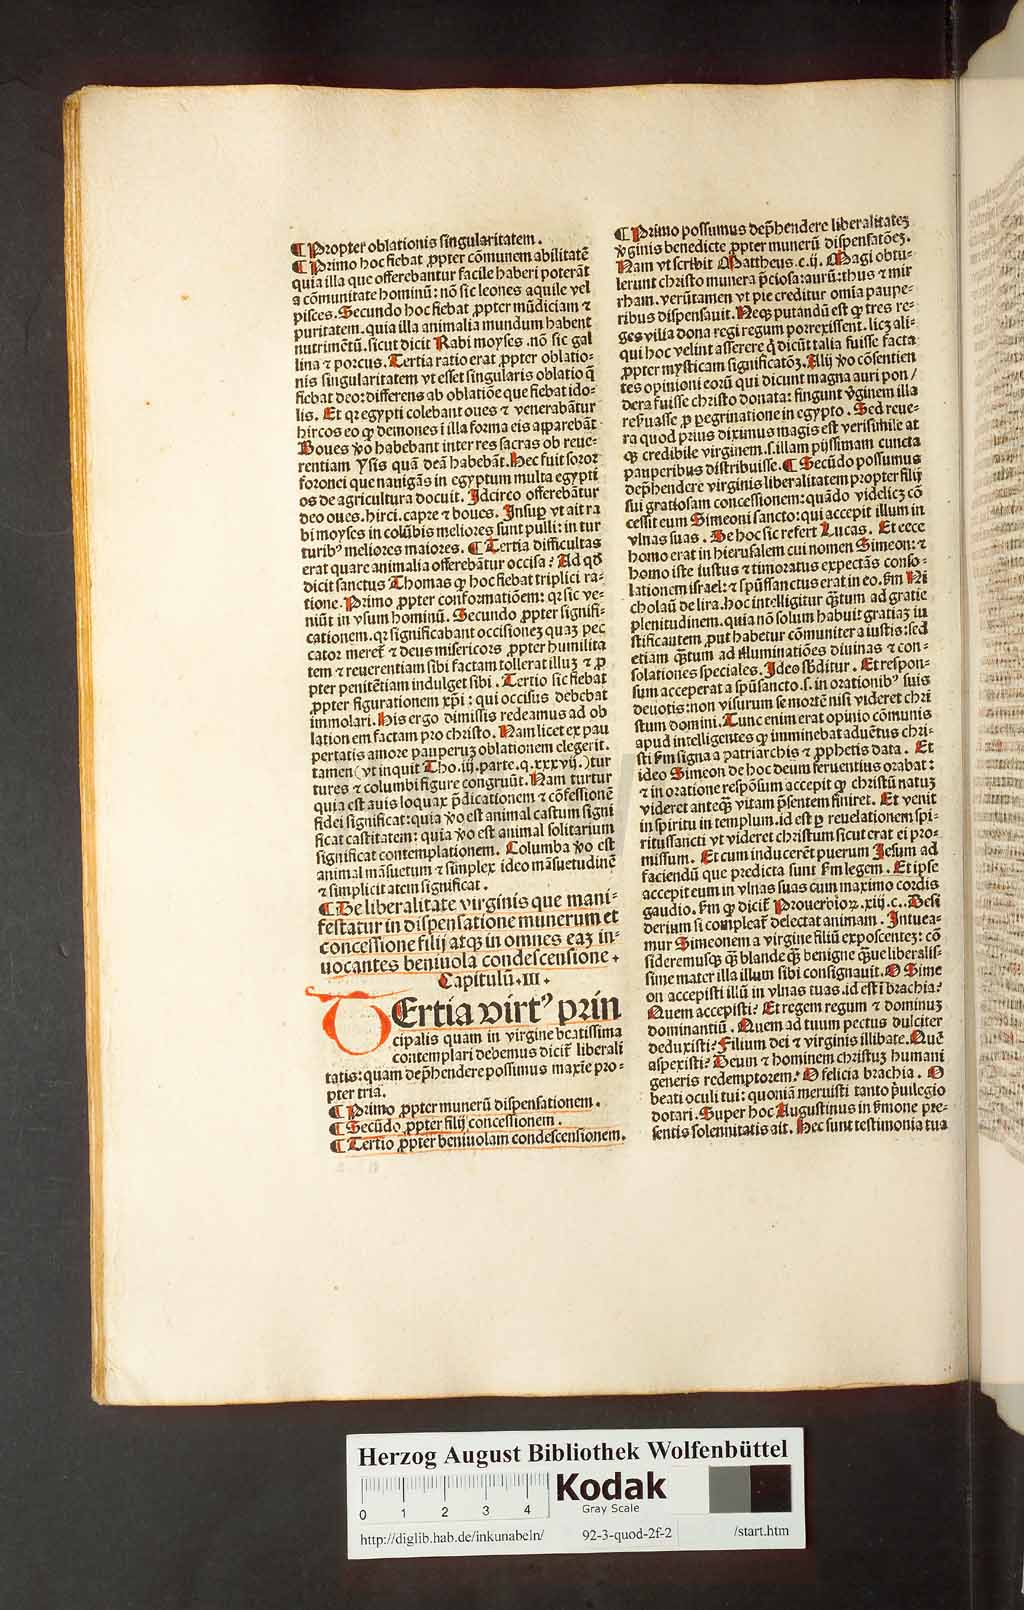 ¶ Propter oblationis singularitatem.
¶ Primo hoc fiebat ꝓpter cõmunem abilitatẽ
quia illa que offerebantur facile haberi poterãt
a cõmunitate hominũ: nõ sic leones aquile vel
pisces. Secundo hoc fiebat ꝓpter mũdiciam ⁊
puritatem. quia illa animalia mundum habent
nutrimẽtũ. sicut dicit Rabi moyses .nõ sic gal
lina ⁊ porcus. Tertia ratio erat ꝓpter oblatio⸗
nis singularitatem vt esset singularis oblatio q̃
fiebat deo: differens ab oblatiõe que fiebat ido⸗
lis. Et qꝛ egypti colebant oues ⁊ venerabãtur
hircos eo ꝙ demones ĩ illa forma eis apparebãt
Boues ꝟo habebant inter res sacras ob reue⸗
rentiam Ysis quã deã habebãt. Hec fuit soror
foronei que nauigãs in egyptum multa egypti
os de agricultura docuit. Idcirco offerebãtur
deo oues. hirci. capre ⁊ boues. Insuꝑ vt ait ra
bi moyses in colũbis meliores sunt pulli: in tur
turibꝰ meliores maiores. ¶ Tertia difficultas
erat quare animalia offerebãtur occisa? Ad qđ
dicit sanctus Thomas ꝙ hoc fiebat triplici ra⸗
tione. Primo ꝓpter conformatiõem: qꝛ sic ve⸗
niũt in vsum hominũ. Secundo ꝓpter signifi⸗
cationem. qꝛ significabant occisioneꝫ quaꝫ pec
cator meret̃ ⁊ deus misericors ꝓpter humilita
tem ⁊ reuerentiam sibi factam tollerat illuꝫ ⁊ ꝓ
pter penitẽtiam indulget sibi. Tertio sic fiebat
ꝓpter figurationem xp̃i: qui occisus debebat
immolari. His ergo dimissis redeamus ad ob
lation em factam pro christo. Nam licet ex pau
pertatis amore pauperuꝫ oblationem elegerit.
tamen (vt inquit Tho. iij. parte. q. xxxvij.) tur
tures ⁊ columbi figure congruũt. Nam turtur
quia est auis loquax p̃dicationem ⁊ cõfessionẽ
fidei significat: quia ꝟo est animal castum signi
ficat castitatem: quia ꝟo est animal solitarium
significat contemplationem. Columba ꝟo est
animal mãsuetum ⁊ simplex ideo mãsuetudinẽ
⁊ simplicit atem significat.
¶ De liberalitate virginis que mani⸗
festatur in dispensatione munerum et
concessione filij atqꝫ in omnes eaꝫ in⸗
uocantes beniuola condescensione.
Capitulũ. III.
TErtia virtꝰ prin
cipalis quam in virgine beatissima
contemplari debemus dicit̃ liberali
tatis: quam dep̃hendere possumus maxie pro⸗
pter tria.
¶ Primo ꝓpter munerũ dispensationem.
¶ Secũdo ꝓpter filij concessionem.
¶ Tertio ꝓpter beniuolam condescensionem.
¶ Primo possumus dep̃hendere liberalitateꝫ
ꝟginis benedicte ꝓpter munerũ dispensatõeꝫ.
Nam vt scribit Mattheus. c. ij. Magi obtu⸗
lerunt christo munera p̃ciosa: aurũ: thus ⁊ mir
rham. verũtamen vt pie creditur omĩa paupe⸗
ribus dispensauit. Neqꝫ putandũ est ꝙ tres re⸗
ges vilia dona regi regum porrexissent. licꝫ ali⸗
qui hoc velint asserere q̃ dicũt talia fuisse facta
ꝓpter mysticam significatõꝫ. Alij ꝟo cõsentien
tes opinioni eorũ qui dicunt magna auri pon/
dera fuisse christo donata: fingunt ꝟginem illa
reẜuasse ꝓ peregrinatione in egypto. Sed reue⸗
ra quod prius diximus magis est verisimile at
qꝫ credibile virginem. s. illam pijssimam cuncta
pauperibus distribuisse. ¶ Secũdo possumus
dep̃hendere virginis liberalitatem propter filij
sui gratiosam concessionem: quãdo videlicꝫ cõ
cessit eum Simeoni sancto: qui accepit illum in
vlnas suas. De hoc sic refert Lucas. Et ecce
homo erat in hierusalem cui nomen Simeon: ⁊
homo iste iustus ⁊ timoratus expectãs conso⸗
lationem israel: ⁊ spũssanctus erat in eo. ẜm Ni
cholaũ de lira. hoc intelligitur q̃tum ad gratie
plenitudinem. quia nõ solum habuit gratiaꝫ iu
stificantem ꝓut habetur cõmuniter a iustis: sed
etiam q̃tum ad illuminatiões diuinas ⁊ con⸗
solationes speciales. Ideo sb̃ditur. Et respon⸗
sum acceperat a spũsancto. s. in orationibꝰ suis
deuotis: non visurum se mortẽ nisi videret chri
stum domini. Tunc enim erat opinio cõmunis
apud intelligentes ꝙ imminebat aduẽtus chri⸗
sti ẜm signa a patriarchis ⁊ ꝓphetis data. Et
ideo Simeon de hoc deum feruentius orabat:
⁊ in oratione respõsum accepit ꝙ christũ natuꝫ
videret anteqꝫ vitam p̃sentem finiret. Et venit
in spiritu in templum. id est ꝑ reuelationem spi⸗
ritussancti vt videret christum sicut erat ei pro⸗
missum. Et cum inducerẽt puerum Jesum ad
faciendũ que predicta sunt ẜm legem. Et ipse
accepit eum in vlnas suas cum maximo cordis
gaudio. ẜm ꝙ dicit̃ Prouerbioꝝ. xiij. c.. Desi
derium si compleat̃ delectat animam. Intuea⸗
mur Simeonem a virgine filiũ exposcenteꝫ: cõ
sideremusqꝫ qꝫ blande qꝫ benigne qꝫue liberalis⸗
sime mater illa illum sibi consignauit. O Sime
on accepisti illũ in vlnas tuas. id est ĩ brachia?
Quem accepisti? Et regem regum ⁊ dominuꝫ
dominantiũ. Quem ad tuum pectus dulciter
deduxisti? Filium dei ⁊ virginis illibate. Quẽ
aspexisti? Deum ⁊ hominem christuꝫ humani
generis redemptorem? O felicia brachia. O
beati oculi tui: quoniã meruisti tanto p̃uilegio
dotari. Super hoc Augustinus in ẜmone pre⸗
sentis solennitatis ait. Hec sunt testimonia tua
Herzog August Bibliothek Wolfenbüttel
Kodak
Gray Scale
0 1 2 3 4
http://diglib.hab.de/inkunabeln/ 92-3-quod-2f-2 /start.htm